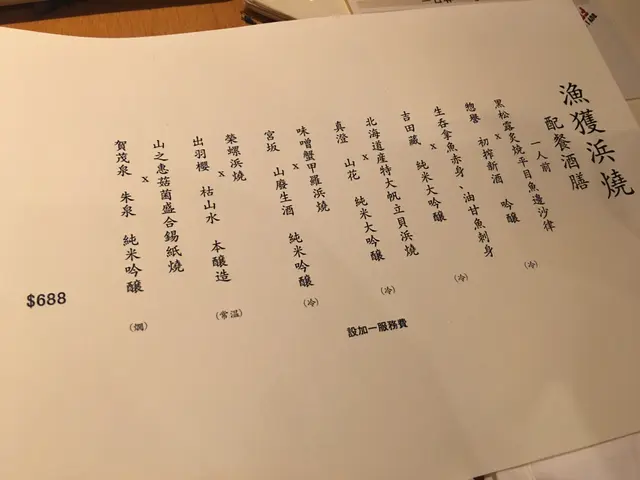 漁獲浜燒
配餐酒膳
一人前
黑松露炙燒平目魚邊沙律
x
惣譽 初搾新酒 吟醸 (冷)
生吞拿魚赤身、油甘魚刺身
x
吉田蔵 純米大吟醸 (冷)
北海道産特大帆立貝浜燒
x
真澄 山花 純米大吟醸 (冷)
味噌蟹甲羅浜燒
x
宮坂 山廢生酒 純米吟醸 (冷)
榮螺浜燒
x
出羽櫻 枯山水 本醸造 (常温)
山之惠菇菌盛合錫紙燒
x
賀茂泉 朱泉 純米吟醸 (燗)
$688
設加一服務費